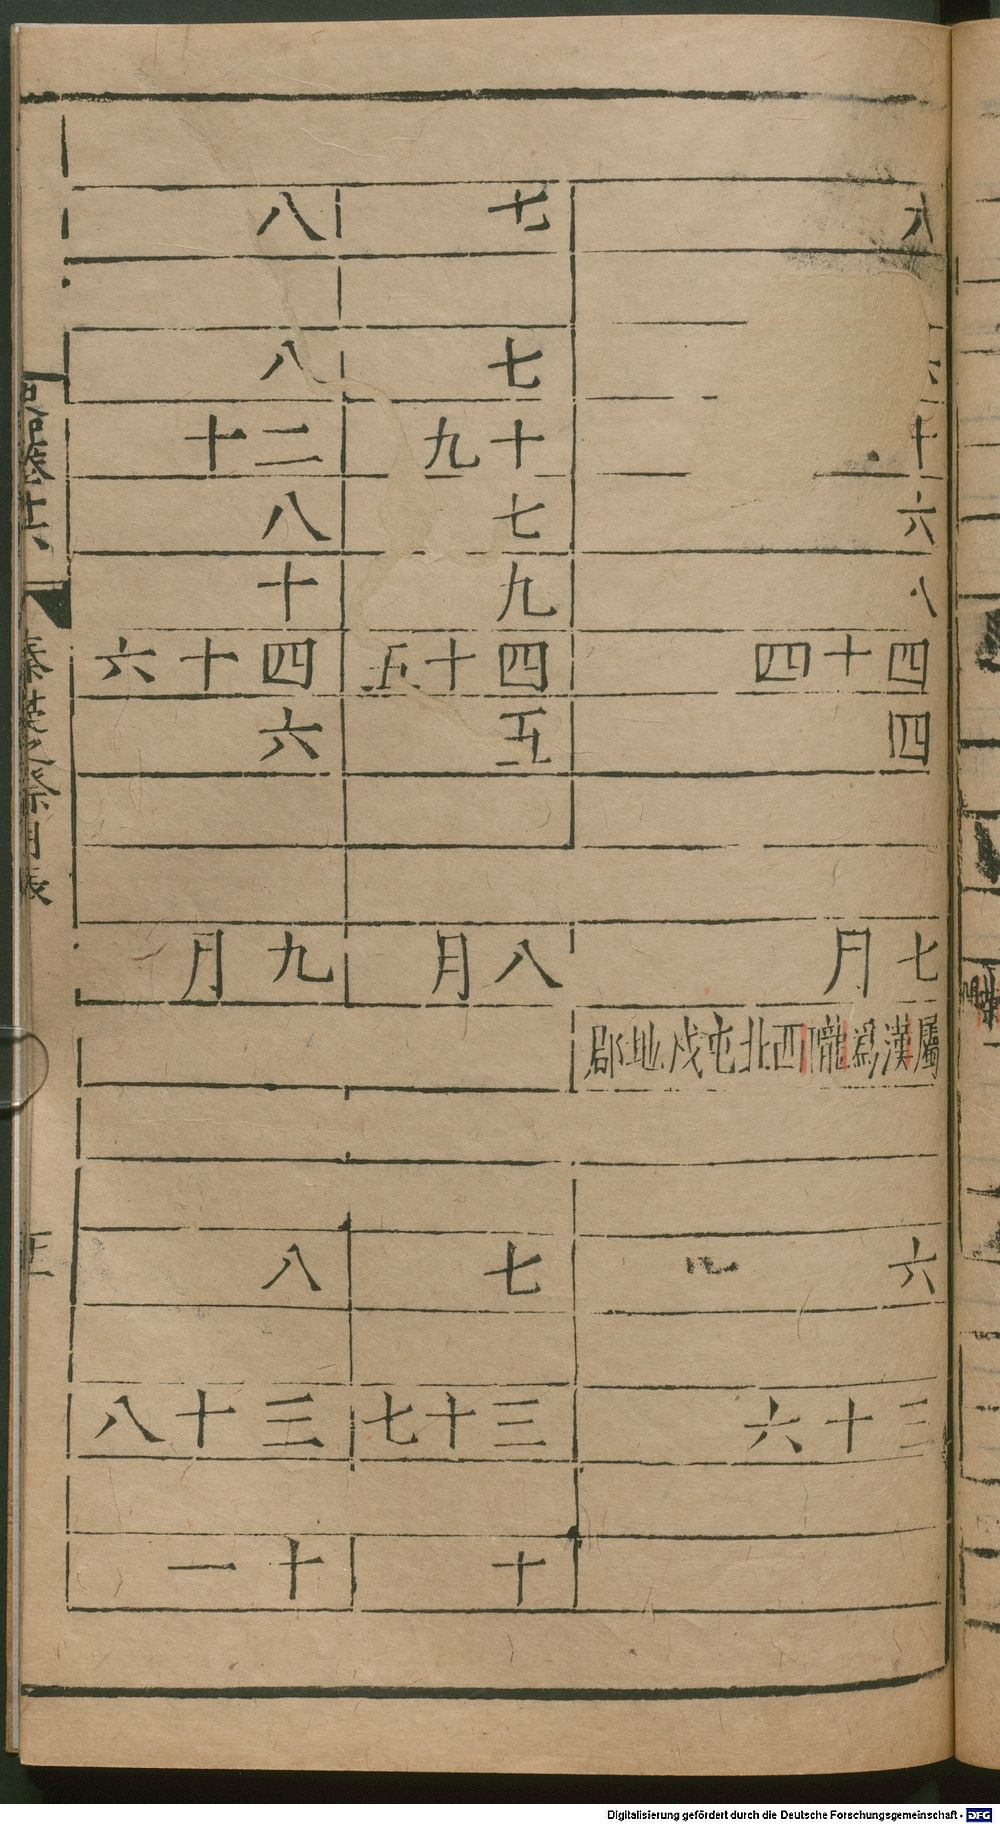 六
十
六
八
四十四
四
七月
屬漢爲隴西北屯戍地郡
六
三十六
七
七
十九
七
九
四十五
五
八月
七
三十七
十
八
八
二十
八
十
四十六
六
九月
八
三十八
十一
卷十六
秦楚之際月表
Digitalisierung gefördert durch die Deutsche Forschungsgemeinschaft - DFG